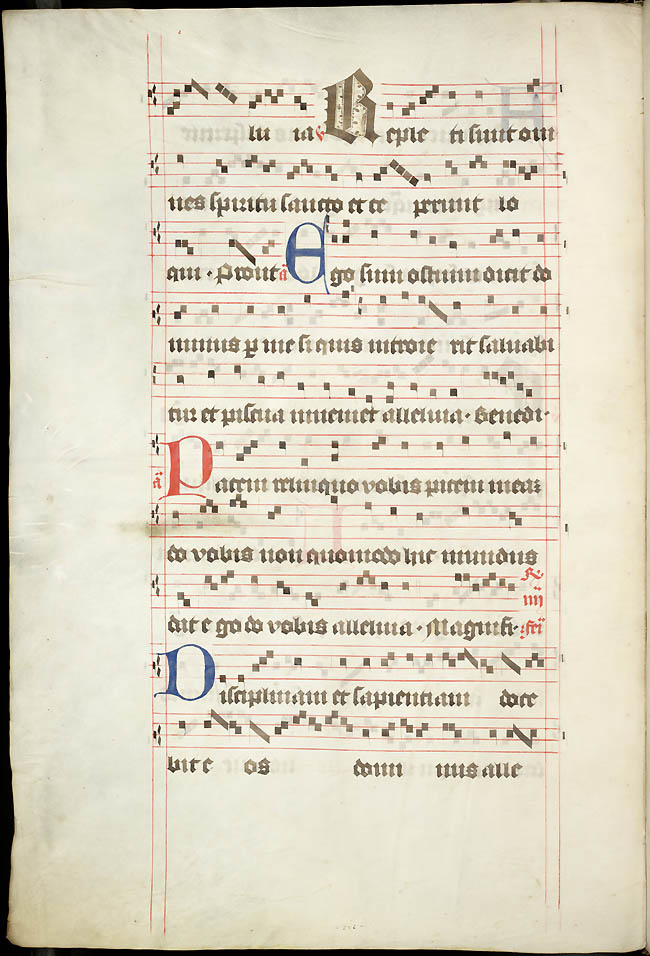 lu ia ℣ Reple ti sunt om
nes spiritu sancto et ce perunt lo
qui · Prout a Ego sum ostium dicit do
minus p me si quis introie rit salvabi
tur et pascua inveniet alleluia · Benedi ·
a Pacem relinquo vobis pacem meaz
do vobis non quomodo hic mundus
℟ iiii
dat e go do vobis alleluia · Magnifi · fei
Disciplinam et sapientiam doce
bit e os domi nus alle